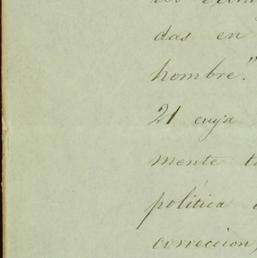 das en
hombre."
21 cuya
mente t
política
corrección,